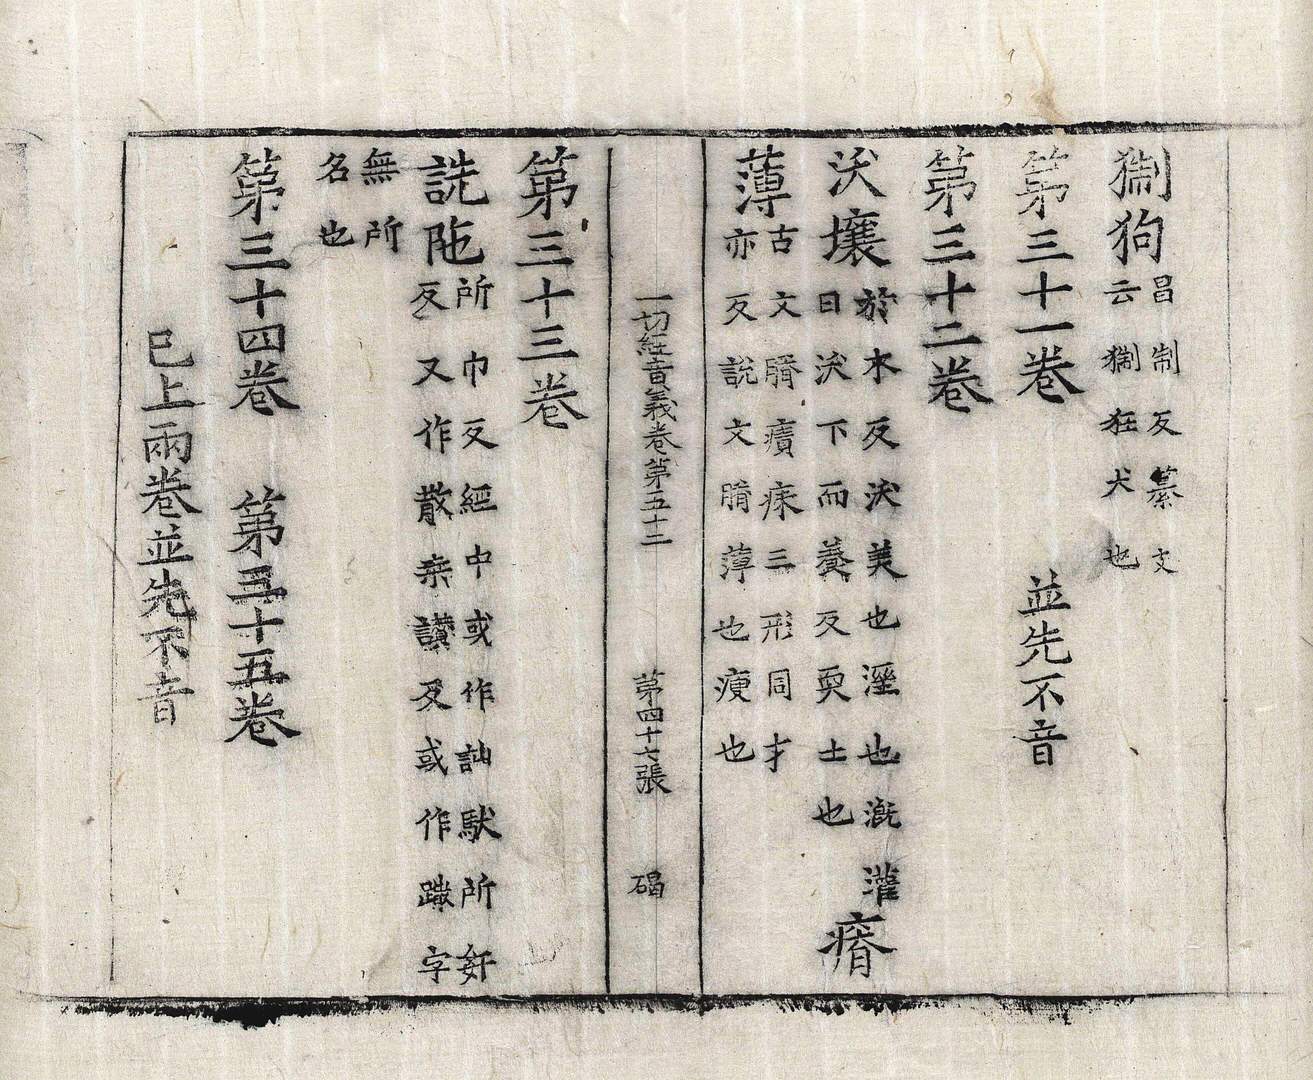 猘狗昌制反纂文
云猘狂犬也
第三十一卷 並先不音
第三十二卷
沃壤於木反沃美也溼也漑灌
曰沃下而養反耎土也瘠
薄古文膌㾊𤶠三形同才
亦反說文膌薄也瘦也
一切經音義卷第五十三 第四十七張 碣
第三十三卷
詵陁所巾反經中或作訕馱所姧
反又作散桒讃反或作𨇤字
無所
名也
第三十四卷 第三十五卷
已上兩卷並先不音